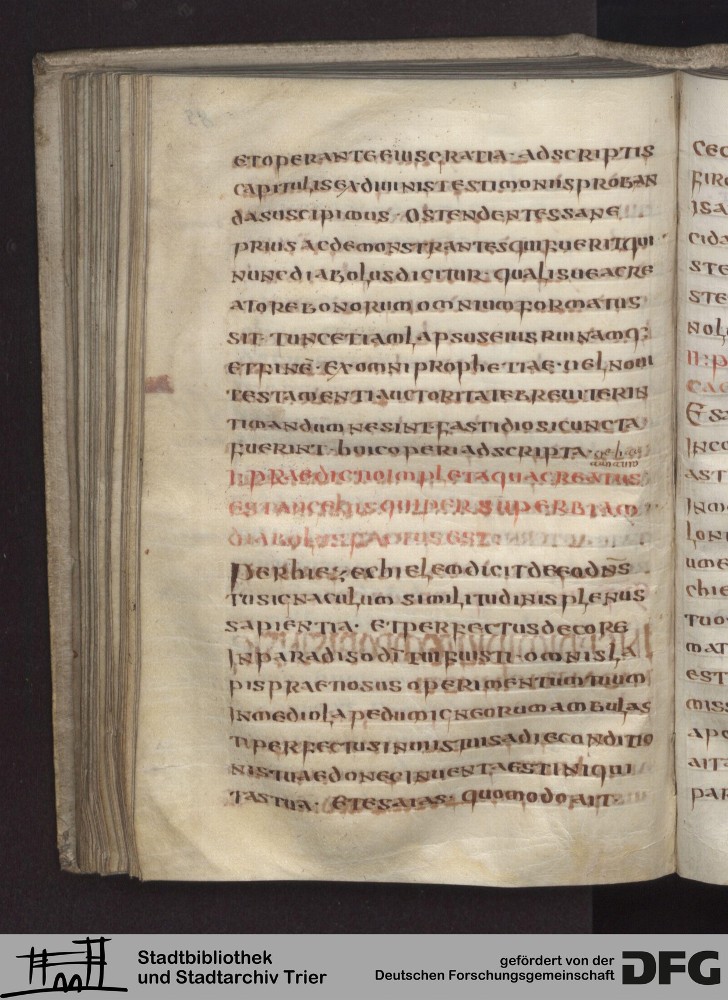 ETOPERANTEEIUSGRATIA· ADSCRIPTIS
CAPITULISEXDIUINISTESTIMONIISPROBAN
DASUSCIPIMUS· OSTENDENTESSANE
PRIUS ACDEMONSTRANTESQUIFUERITQUI
NUNCDIABOLUSDICITUR· QUALISUEACRE
ATOREBONORUMOMNIUMFORMATUS
SIT· TUNCETIAMLAPSUSEIUSRUINAMQ;
ETFINĒ· EXOMNIPROPHETIAE· UELNOUI
TESTAMENTIAUCTORITATEBREUITERIN
TIMANDUMNESINTFASTIDIOSICUNCTA
FUERINT· HUICOPERIADSCRIPTA·
I: PRAEDICTIOIMPLETAQUACREATUS
ESTANGELUSQUIPERSUPERBIAM
DIABOLUSFACTUSEST
PERHIEZECHIELEMDICITDEEODN̄S
TUSIGNACULUM SIMILITUDINISPLENUS
SAPIENTIA· ETPERFECTUSDECORE
INPARADISODĪ TUIFUISTI· OMNISLA
PISPRAETIOSUSOPERIMENTUMTUUM
INMEDIOLAPEDUMIGNEORUMAMBULAS
TIPERFECTUSINUIISTUISADIECONDITIO
NISTUAEDONECINUENTAESTINIQUI
TASTUA· ETESAIAS· QUOMODOAIT·
CIDA
STE
STE
EST
INCO
AST
INM
LONI
UME
CHIE
TUO
MAT
EST
MISS
APO
AIT
PAR
Stadtbibliothek
und Stadtarchiv Trier
gefördert von der
Deutschen Forschungsgemeinschaft
DFG